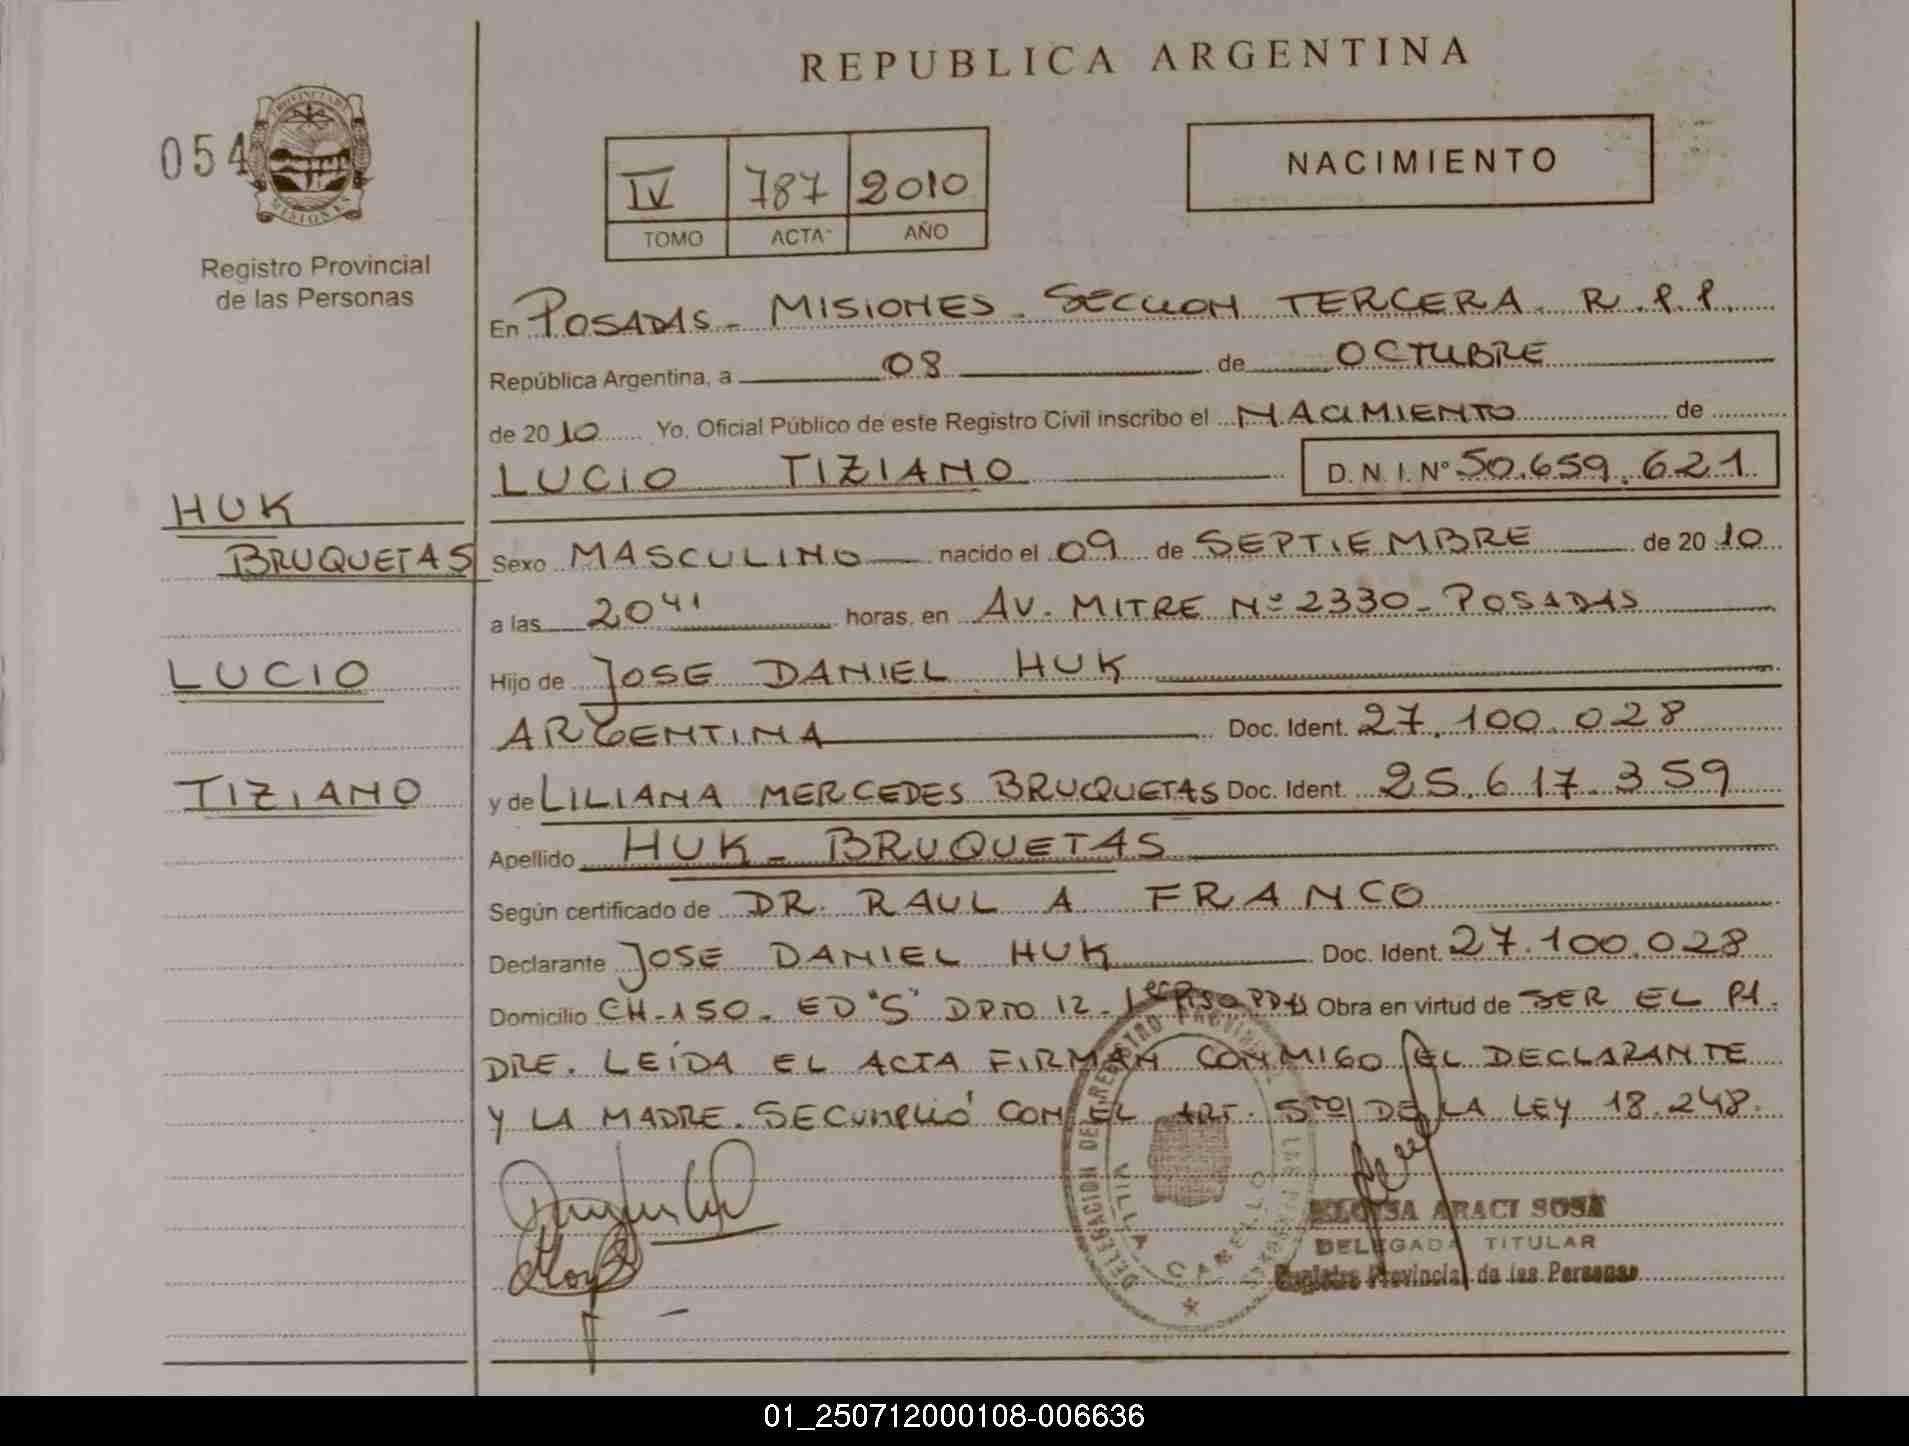 REPUBLICA ARGENTINA
054
PROVINCIA DE MISIONES
Registro Provincial
de las Personas
IV 787 2010
TOMO ACTA AÑO
NACIMIENTO
En POSADAS - MISIONES - SECCION TERCERA. R.P.P.
República Argentina, a 08 de OCTUBRE
de 2010 Yo, Oficial Público de este Registro Civil inscribo el NACIMIENTO de
LUCIO TIZIANO D.N.I. Nº 50.659.621
HUK
BRUQUETAS
LUCIO
TIZIANO
Sexo MASCULINO nacido el 09 de SEPTIEMBRE de 2010
a las 20 41 horas, en AV. MITRE Nº 2330 - POSADAS
Hijo de JOSE DANIEL HUK
ARGENTINA Doc. Ident. 27.100.028
y de LILIANA MERCEDES BRUQUETAS Doc. Ident. 25.617.359
Apellido HUK - BRUQUETAS
Según certificado de DR. RAUL A FRANCO
Declarante JOSE DANIEL HUK Doc. Ident. 27.100.028
Domicilio CH-150. ED "S" DPTO 12 - 1er PISO PDAS Obra en virtud de SER EL PA-
DRE. LEÍDA EL ACTA FIRMAN CONMIGO EL DECLARANTE
Y LA MADRE. SE CUMPLIÓ CON EL ART. 5to DE LA LEY 18.248.
DELEGACION DEL REGISTRO PROVINCIAL DE LAS PERSONAS
VILLA CABELLO
ELOISA ARACI SOSA
DELEGADA TITULAR
Registro Provincial de las Personas
01_250712000108-006636